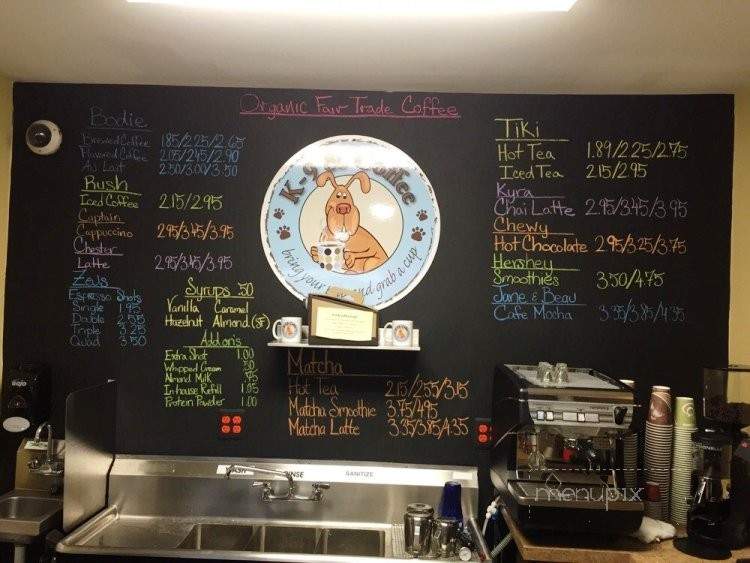 Organic Fair Trade Coffee
Bodie
Brewed Coffee 1.85/2.25/2.65
Flavored Coffee 2.05/2.45/2.90
Au Lait 2.50/3.00/3.50
Rush
Iced Coffee 2.15/2.95
Captain
Cappuccino 2.95/3.45/3.95
Chester
Latte 2.95/3.45/3.95
Zeus
Espresso Shots
Single 1.95
Double 2.55
Triple 3.25
Quad 3.50
Syrups .50
Vanilla Caramel
Hazelnut Almond (SF)
Add on's
Extra Shot 1.00
Whipped Cream .50
Almond Milk .75
In-house Refill 1.05
Protein Powder 1.00
K-9 Coffee
bring your and grab a cup
Matcha
Hot Tea 2.15/2.55/3.15
Matcha Smoothie 3.75/4.95
Matcha Latte 3.35/3.85/4.35
Tiki
Hot Tea 1.89/2.25/2.75
Iced Tea 2.15/2.95
Kyra
Chai Latte 2.95/3.45/3.95
Chewy
Hot Chocolate 2.95/3.25/3.75
Hershey
Smoothies 3.50/4.75
Jane & Beau
Cafe Mocha 3.35/3.85/4.35
WASH RINSE SANITIZE
menupix